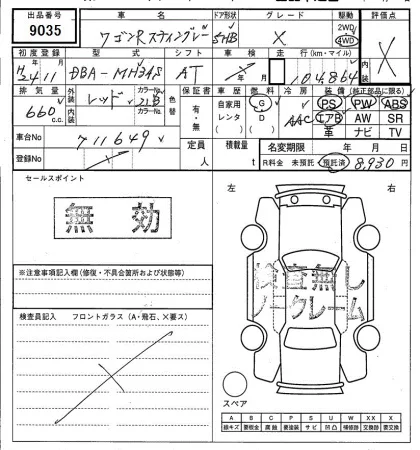 出品番号 車名 ドア形状 グレード 駆動 評価点
9035 ワゴンRスティングレー 5HB X 2WD 4WD X
初度登録 型式 シフト 車検 走行(km・マイル) 内装
H24 11 DBA-MH34S AT 104864
排気量 外装 カラーNo. 色替 保証書 車歴 燃料 冷房 装備(純正部品に限る)
660 c.c. レッド 内装 カラーNo. 有・無 自家用 レンタ ( ) G D AAC PS PW ABS
エアB AW SR
革 ナビ TV
車台No 711649 定員 人 積載量 t 名変期限 年 月 日
登録No R料金 未預託 預託済 8,930円
セールスポイント 左 右
無効
検査無し
ノークレーム
※注意事項記入欄(修復・不具合箇所および状態等)
検査員記入 フロントガラス(A・飛石、X要ス)
スペア
A B C P S U W XX X
線キズ 要板金 腐蝕 要塗装 サビ 凹凸 補修跡 交換跡 要交換